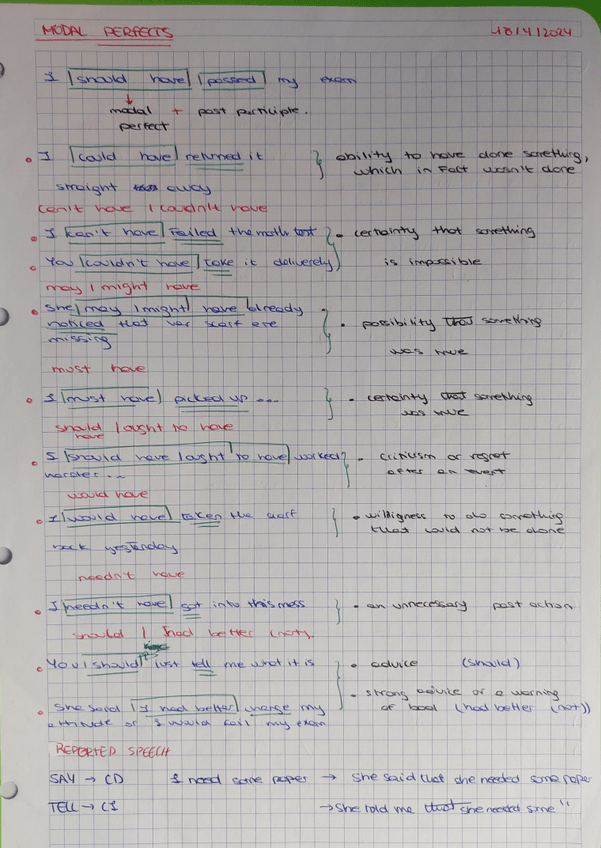 MODAL PERFECTS 18/4/2024
I should have passed my exam
modal + past participle.
perfect
I could have returned it ability to have done something,
straight away which in fact wasn't done
can't have / couldn't have
I can't have failed the math test • certainty that something
You couldn't have take it deliverely is impossible
may / might have
She may / might have already
noticed that her scarf are • possibility that something
missing was true
must have
I must have picked up ... • certainty that something
was true
should have / ought to have
I should have / ought to have worked • criticism or regret
harder ... after an event
would have
I would have taken the scarf • willigness to do something
back yesterday that could not be done
needn't have
I needn't have got into this mess • an unnecessary past action
should / had better (not)
You should just tell me what it is • advice (should)
• strong advice or a warning
She said I had better change my of bad (had better (not))
attitude or I would fail my exam
REPORTED SPEECH
SAY → CD I need some paper → She said that she needed some paper
TELL → CI → She told me that she needed some "